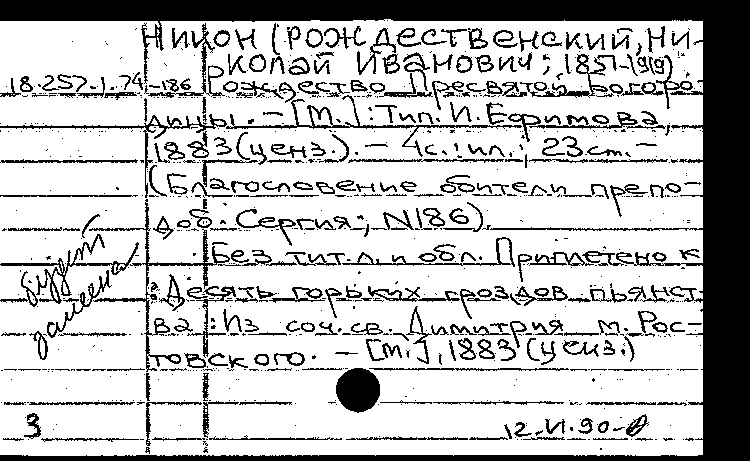 Никон (Рождественский, Ни-
колай Иванович; 1851-1919)
18.257.1.74-186 Рождество Пресвятой Богоро-
дицы. – [М.] : Тип. И. Ефимова,
1883 (ценз.). – 4с.: ил.; 23см. –
(Благословение обители препо-
доб. Сергия; N186).
Без тит.л. и обл. Приплетено к
: Десять горьких гроздов пьянст-
ва : Из соч. св. Димитрия м. Рос-
товского. – [М.], 1883 (ценз.)
будет
заменена
3
12.VI.90